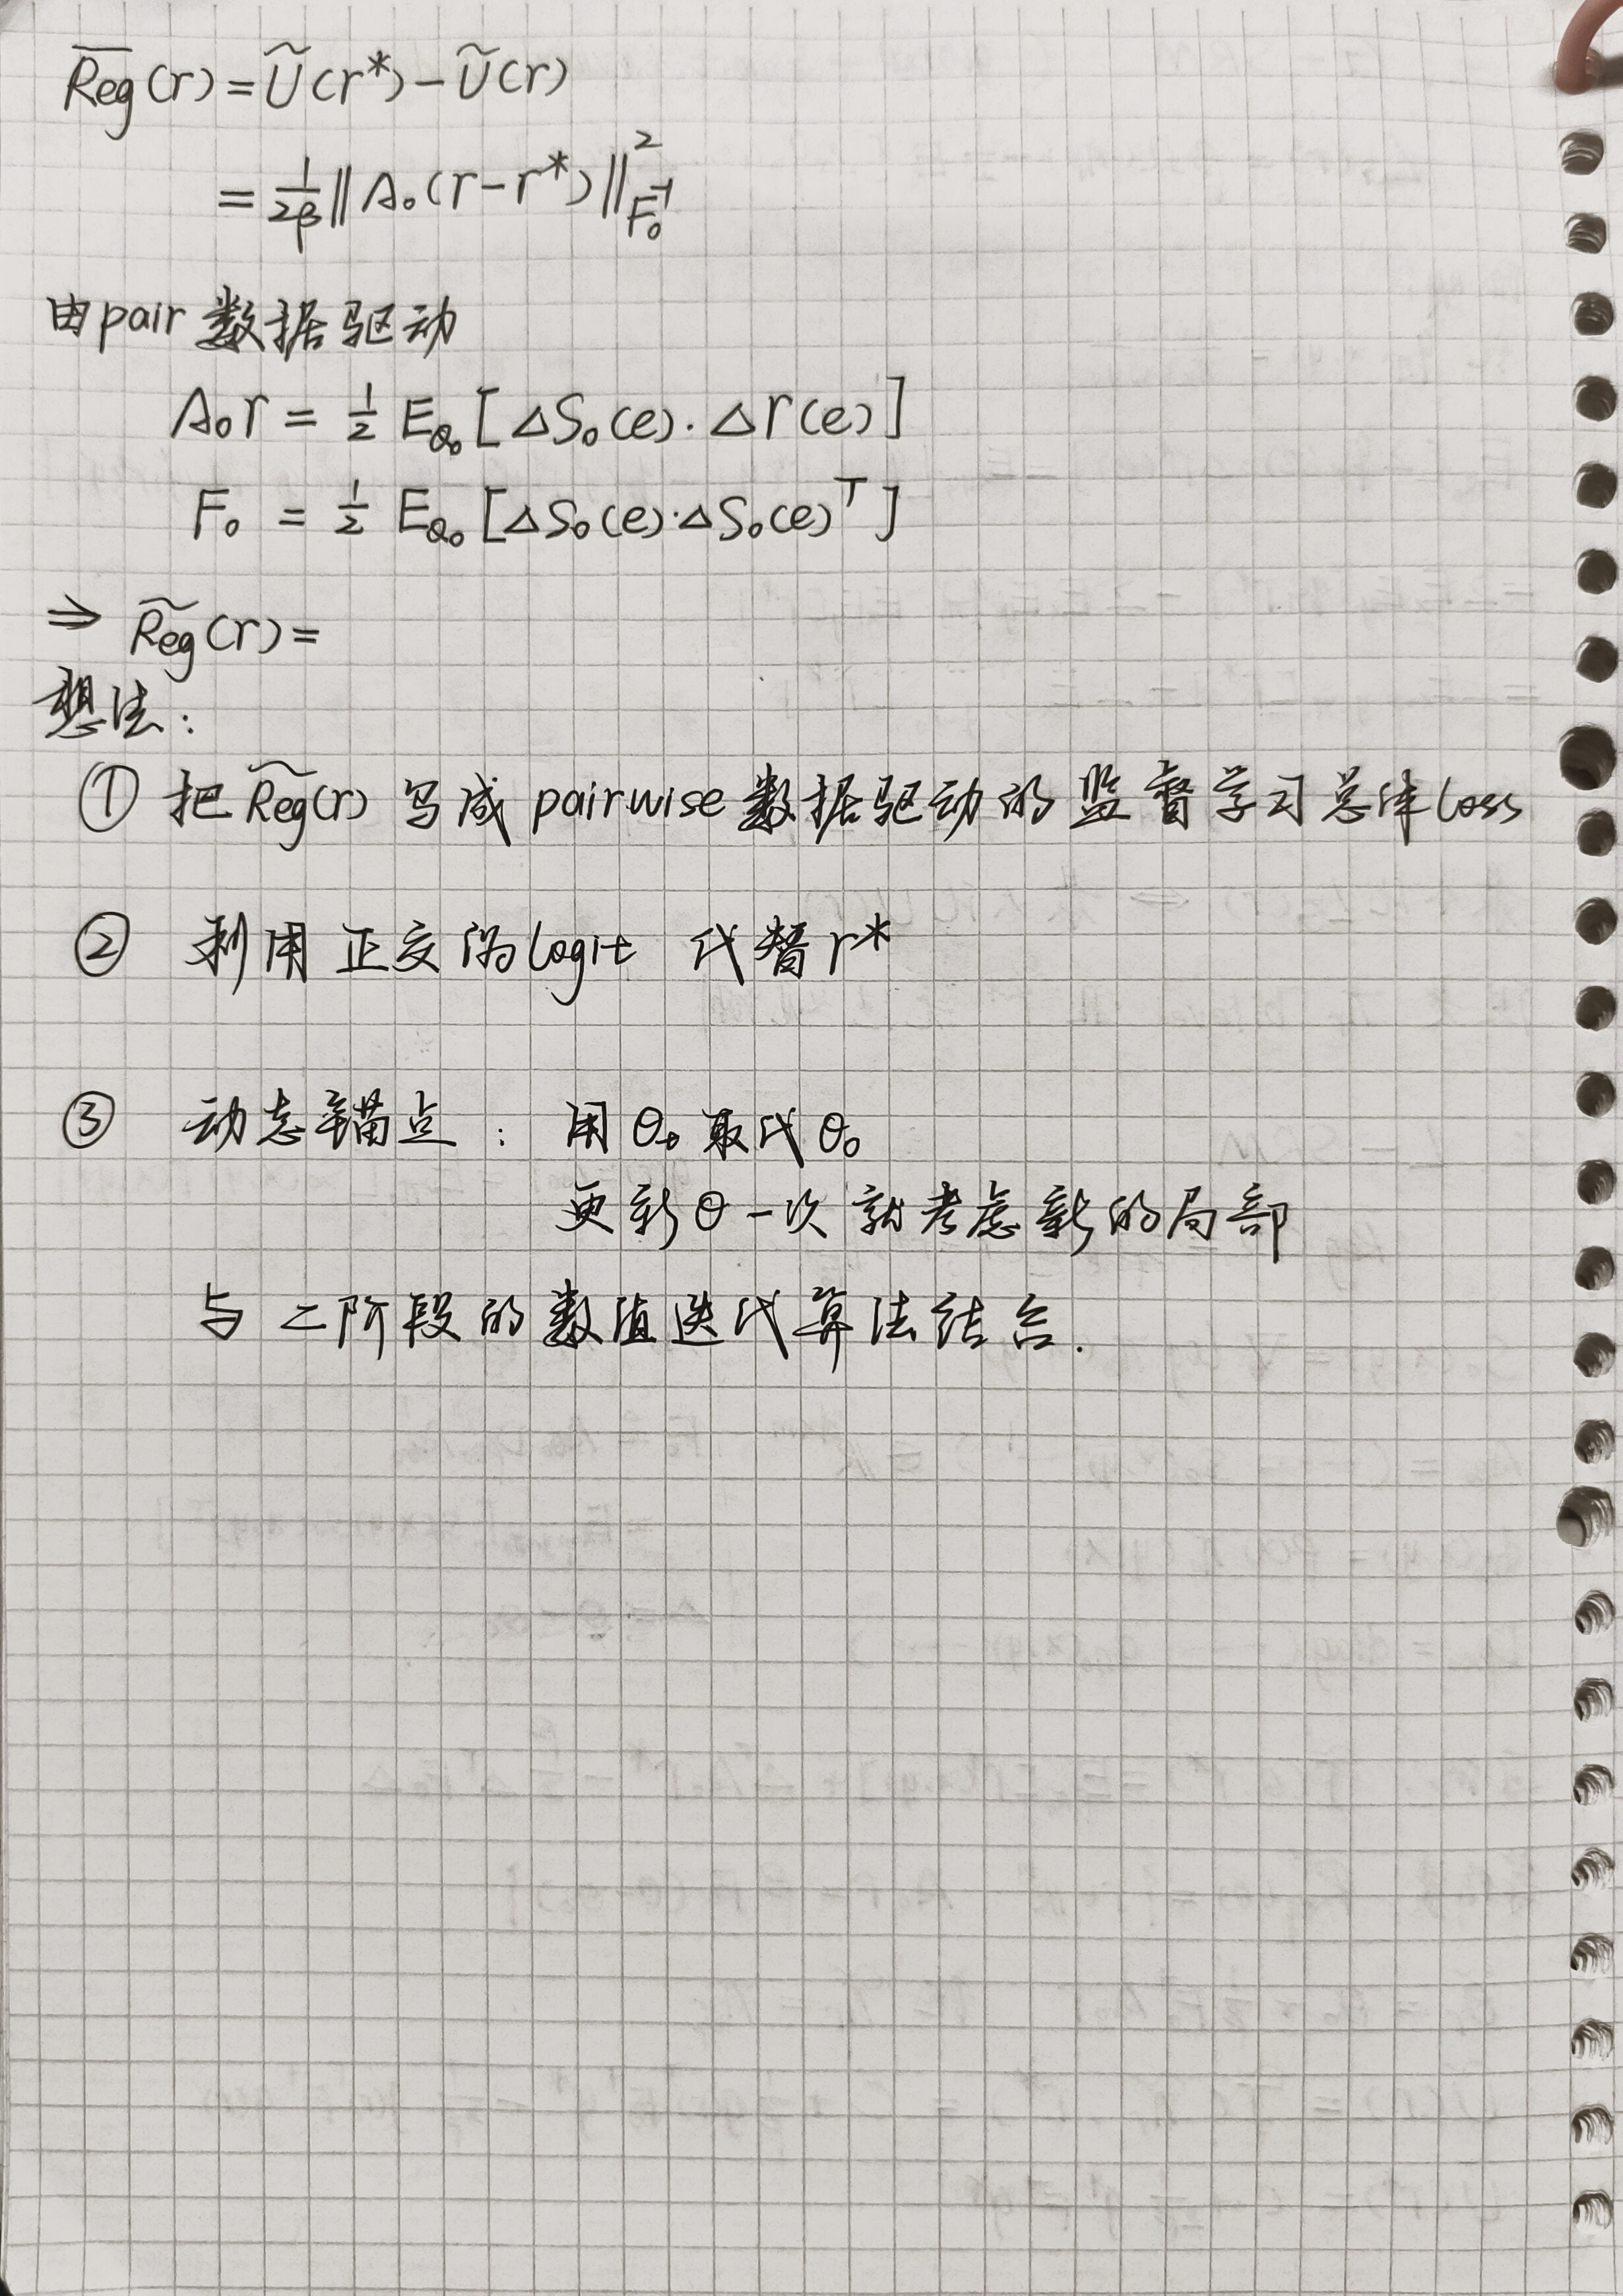 R̅e̅g̅(r) = Ũ(r*) − Ũ(r)
= 1/2β ‖A₀(r−r*)‖²_{F₀⁻¹}
由pair 数据驱动
A₀r = 1/2 E_{Q₀}[ΔS₀(e)·Δr(e)]
F₀ = 1/2 E_{Q₀}[ΔS₀(e)·ΔS₀(e)ᵀ]
⇒ R̃eg(r) =
想法:
① 把 R̃eg(r) 写成 pairwise 数据驱动的监督学习总体loss
② 利用正交的logit 代替r*
③ 动态锚点: 用θₜ取代θ₀
更新θ一次就考虑新的局部
与二阶段的数值迭代算法结合.